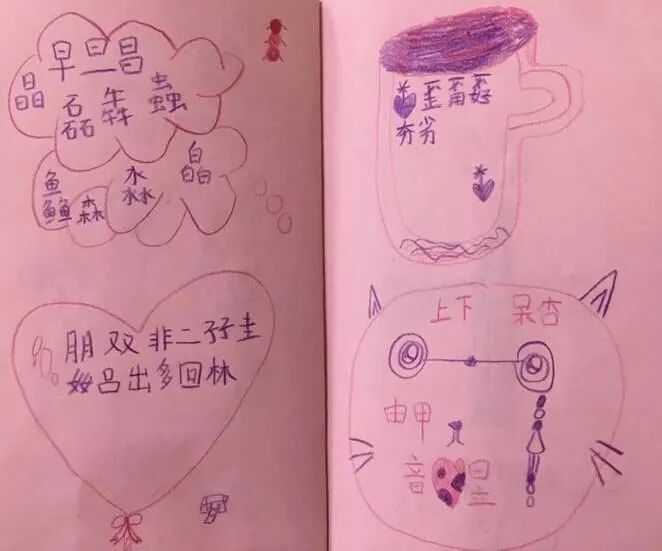 早旦昌
晶磊犇蟲
鱻森淼皛
朋双非二孖圭
奻吕出多回林
歪甭孬
夯劣
上下 呆杏
由甲
音昱